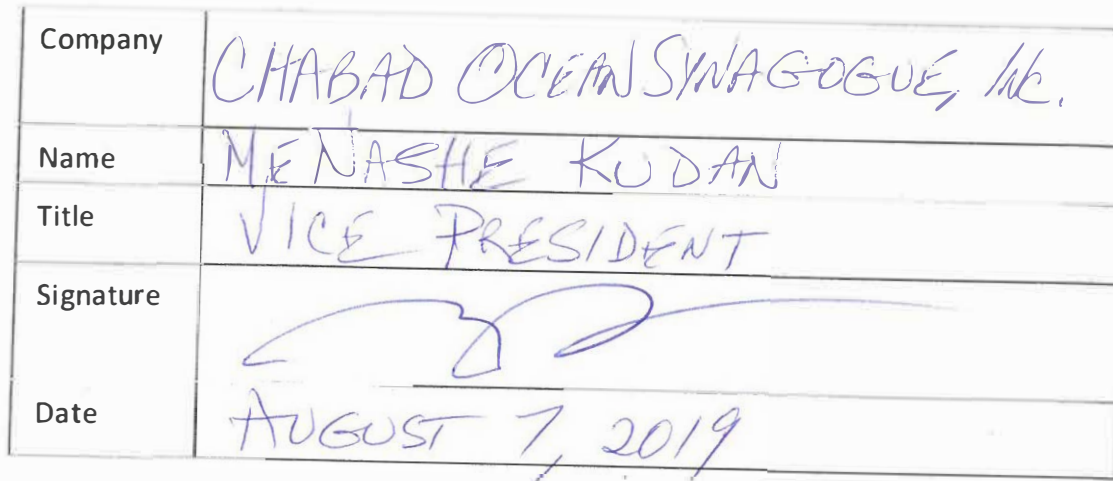 Company CHABAD OCEAN SYNAGOGUE, INC.
Name MENASHE KUDAN
Title VICE PRESIDENT
Signature
Date AUGUST 7, 2019